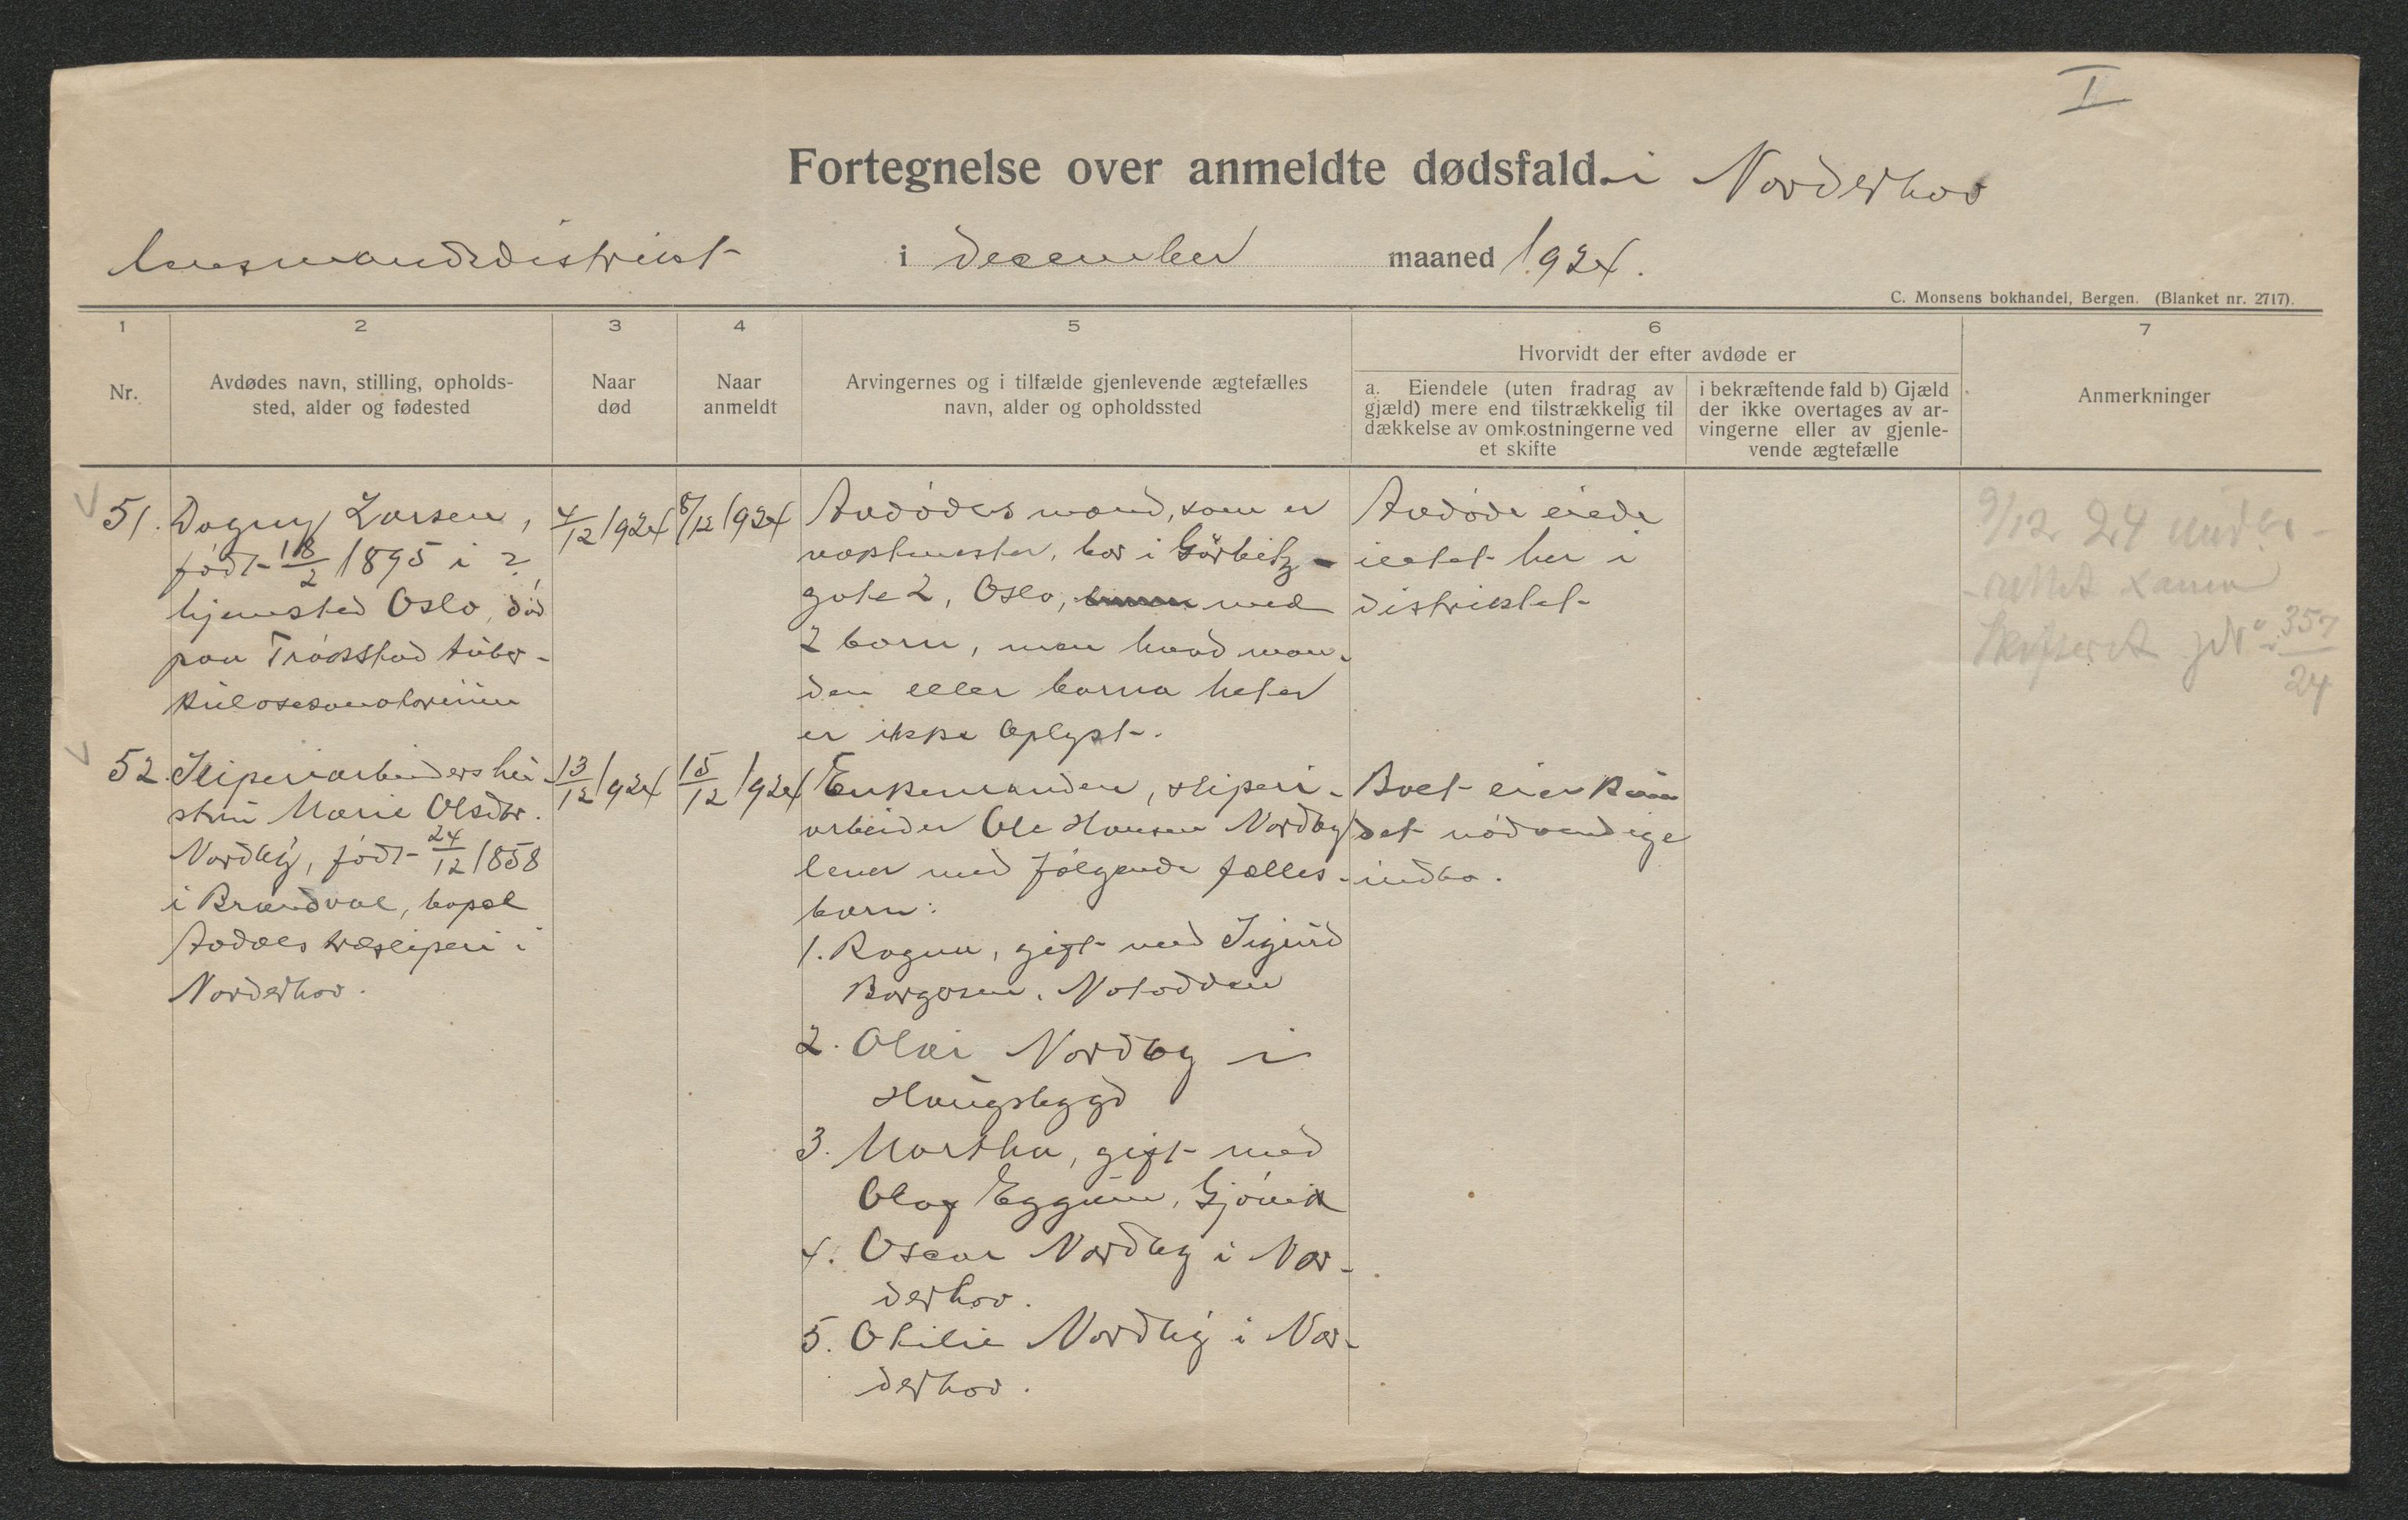 I
Fortegnelse over anmeldte dødsfald i Norderhov
lensmandsdistrikt i december maaned 1924.
C. Monsens bokhandel, Bergen. (Blanket nr. 2717).
1 2 3 4 5 6 7
Nr.
Avdødes navn, stilling, opholds-
sted, alder og fødested
Naar
død
Naar
anmeldt
Arvingernes og i tilfælde gjenlevende ægtefælles
navn, alder og opholdssted
Hvorvidt der efter avdøde er
a. Eiendele (uten fradrag av
gjæld) mere end tilstrækkelig til
dækkelse av omkostningerne ved
et skifte
i bekræftende fald b) Gjæld
der ikke overtages av ar-
vingerne eller av gjenle-
vende ægtefælle
Anmerkninger
51.
Dagny Larsen,
født 18/2 1895 i ?
hjemsted Oslo, død
paa Trøgstad tuber-
kulosesanatorium
4/12 1924
8/12 1924
Avdødes mand, som er
vaktmester, bor i Görbitz-
gate 2, Oslo, med
2 barn, men hvad man-
den eller barna heter
er ikke oplyst.
Avdøde eiede
intet her i
distriktet
9/12 24
357/24
52.
Sliperiarbeiders hu-
stru Marie Olsdtr.
Nordby, født 24/12 1858
i Brandval, bopæl
Aadals træsliperi i
Norderhov.
13/12 1924
15/12 1924
Enkemanden, sliperi-
arbeider Ole Hansen Nordby
lever med følgende fælles-
barn:
1. Ragna, gift med Sigurd
Borgersen, Notodden
2. Olai Nordby i
Haugsbygd
3. Martha, gift med
Olaf Eggum, Gjøvik
4. Oscar Nordby i Nor-
derhov.
5. Othilie Nordby i Nor-
derhov.
Boet eier kun
det nødvendige
indbo.